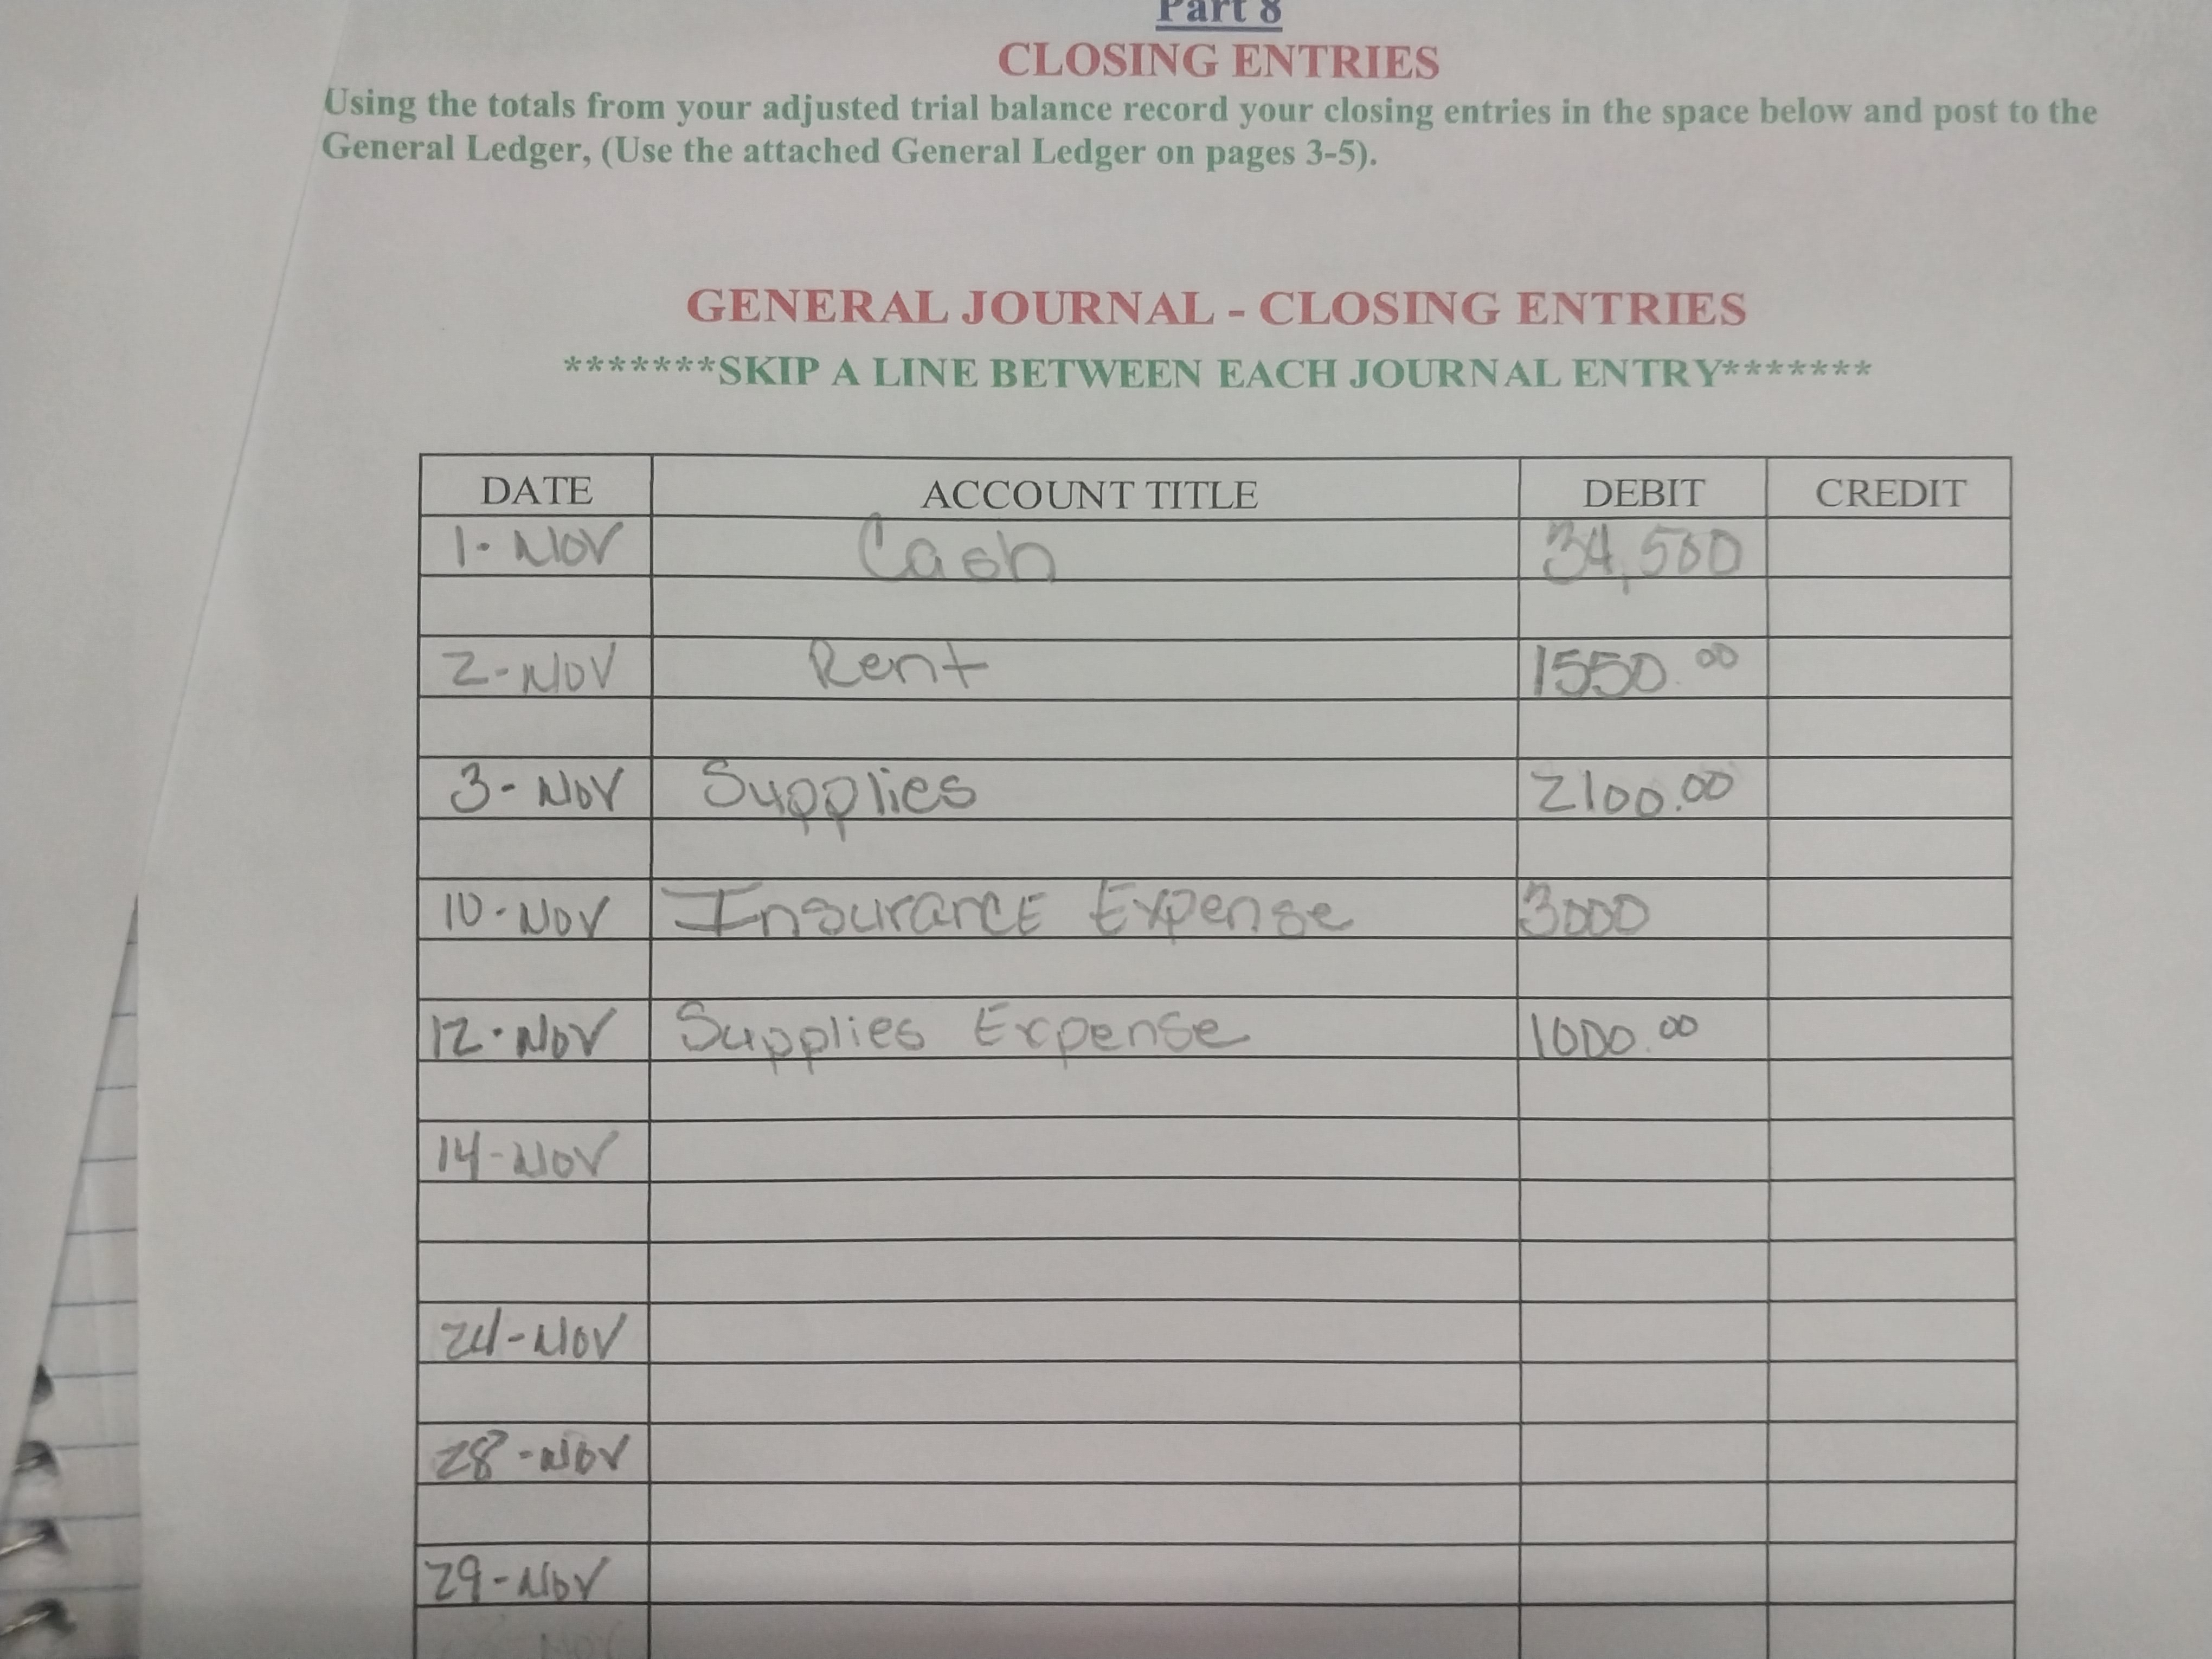 Part 8
CLOSING ENTRIES
Using the totals from your adjusted trial balance record your closing entries in the space below and post to the
General Ledger, (Use the attached General Ledger on pages 3-5).
GENERAL JOURNAL - CLOSING ENTRIES
*******SKIP A LINE BETWEEN EACH JOURNAL ENTRY*******
DATE ACCOUNT TITLE DEBIT CREDIT
1-NOV Cash 34,500
2-NOV Rent 1550.00
3-NOV Supplies 2100.00
10-NOV InsurancE Expense 3000
12-NOV Supplies Expense 1000.00
14-NOV
24-NOV
28-NOV
29-NOV